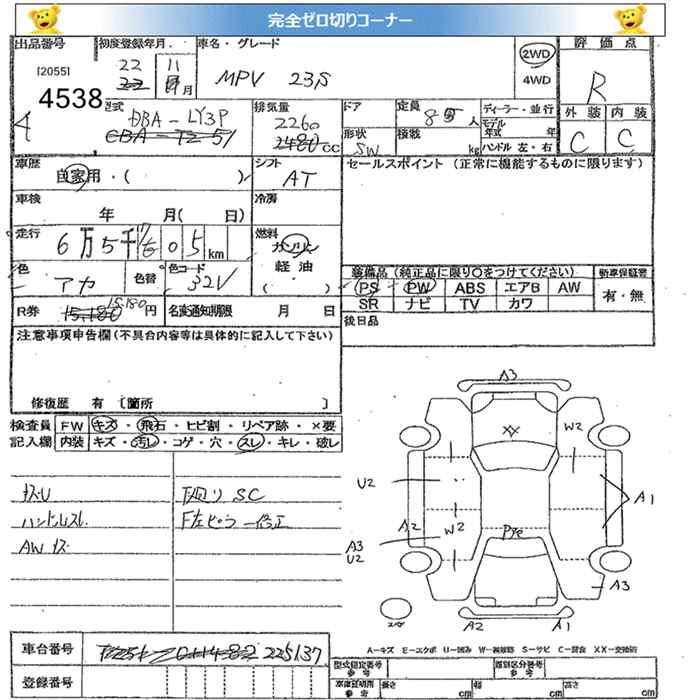 完全ゼロ切りコーナー
出品番号 初度登録年月 車名・グレード 2WD 4WD 評価点
[2055] 22 11 月 MPV 23S R
4538
型式 排気量 ドア 定員 8 人 ディーラー・並行 外装 内装
DBA-LY3P 2260 形状 積載 モデル年式 年 C C
2480 cc SW kg ハンドル 左・右
車歴 自家用・( ) シフト AT セールスポイント (正常に機能するものに限ります)
車検 年 月( 日) 冷房
走行 6万5千 05 km 燃料 ガソリン
軽油
色 アカ 色替 色コード 32V ( )
装備品 (純正品に限り○をつけてください) 新車保証書
PS PW ABS エアB AW 有・無
SR ナビ TV カワ
R券 15,180 15,180 円 名変通知期限 月 日 後日品
注意事項申告欄(不具合内容等は具体的に記入して下さい)
修復歴 有 [箇所 ]
検査員 FW キズ・飛石・ヒビ割・リペア跡・×要
記入欄 内装 キズ・汚レ・コゲ・穴・スレ・キレ・破レ
A3
XX
W2
U2
A1
キズU 下廻り SC
ハンドルスレ
A2 W2
AWキズ
A3
U2
A3
A2 A1
A-キズ E-エクボ U-凹み W-補修跡 S-サビ C-腐食 XX-交換済
車台番号 225137
登録番号
型式指定番号 参考 類別区分番号 参考
長さ cm 幅 cm 高さ cm